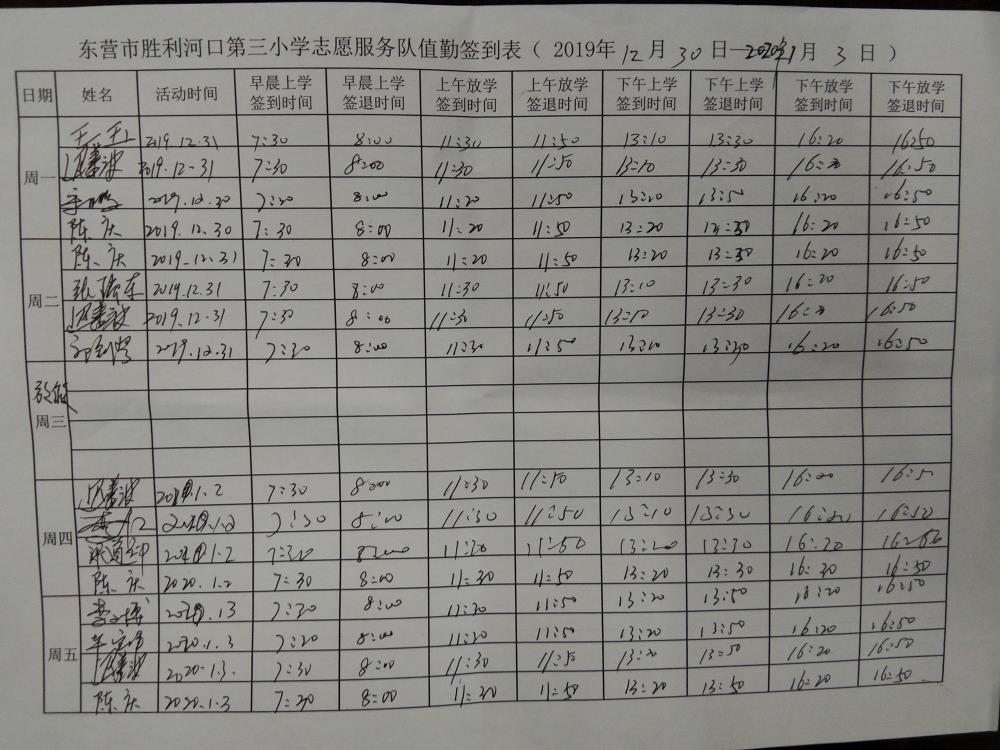 东营市胜利河口第三小学志愿服务队值勤签到表（2019年12月30日—2020年1月3日）
日期 姓名 活动时间 早晨上学签到时间 早晨上学签退时间 上午放学签到时间 上午放学签退时间 下午上学签到时间 下午上学签退时间 下午放学签到时间 下午放学签退时间
周一
2019.12.31 7:30 8:00 11:30 11:50 13:10 13:30 16:20 16:50
2019.12.31 7:30 8:00 11:30 11:50 13:10 13:30 16:20 16:50
2019.12.30 7:20 8:00 11:20 11:50 13:20 13:50 16:20 16:50
陈庆 2019.12.30 7:30 8:00 11:20 11:50 13:20 13:30 16:20 16:50
周二
陈庆 2019.12.31 7:30 8:00 11:20 11:50 13:20 13:30 16:20 16:50
2019.12.31 7:30 8:00 11:30 11:50 13:10 13:30 16:20 16:50
2019.12.31 7:30 8:00 11:30 11:50 13:10 13:30 16:20 16:50
2019.12.31 7:30 8:00 11:30 11:50 13:20 13:30 16:20 16:50
周三
周四
1.2 7:30 8:00 11:30 11:50 13:10 13:30 16:20 16:50
1.2 7:30 8:00 11:30 11:50 13:10 13:30 16:20 16:50
1.2 7:30 8:00 11:20 11:50 13:20 13:30 16:30
陈庆 2020.1.2 7:30 8:00 11:30 11:50 13:20 13:30 16:30 16:50
周五
1.3 7:30 8:00 11:20 11:50 13:20 13:50 16:20 16:50
2020.1.3 7:20 8:00 11:20 11:50 13:20 13:50 16:20 16:50
2020.1.3. 7:30 8:00 11:30 11:50 13:20 13:50 16:20 16:50
陈庆 2020.1.3 7:30 8:00 11:30 11:50 13:20 13:50 16:20 16:50